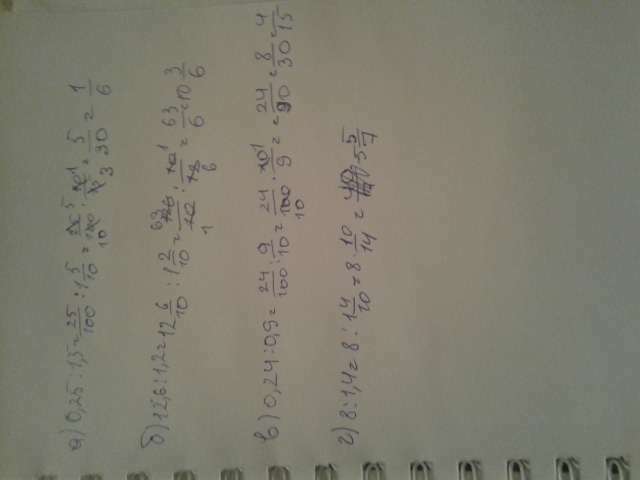 а) 0,25 : 1,5 = 25/100 : 1 5/10 = 25/100 10 · 10 1/ 3 = 5/30 = 1/6
б) 12,6 : 1,2 = 12 6/10 : 1 2/10 = 63 126/10 1 : 10 1/12 6 = 63/6 = 10 3/6
в) 0,24 : 0,9 = 24/100 : 9/10 = 24/100 10 · 10 1/9 = = 24/90 = 8/30 = 4/15
г) 8 : 1,4 = 8 : 1 4/10 = 8 · 10/14 = 5 5/7